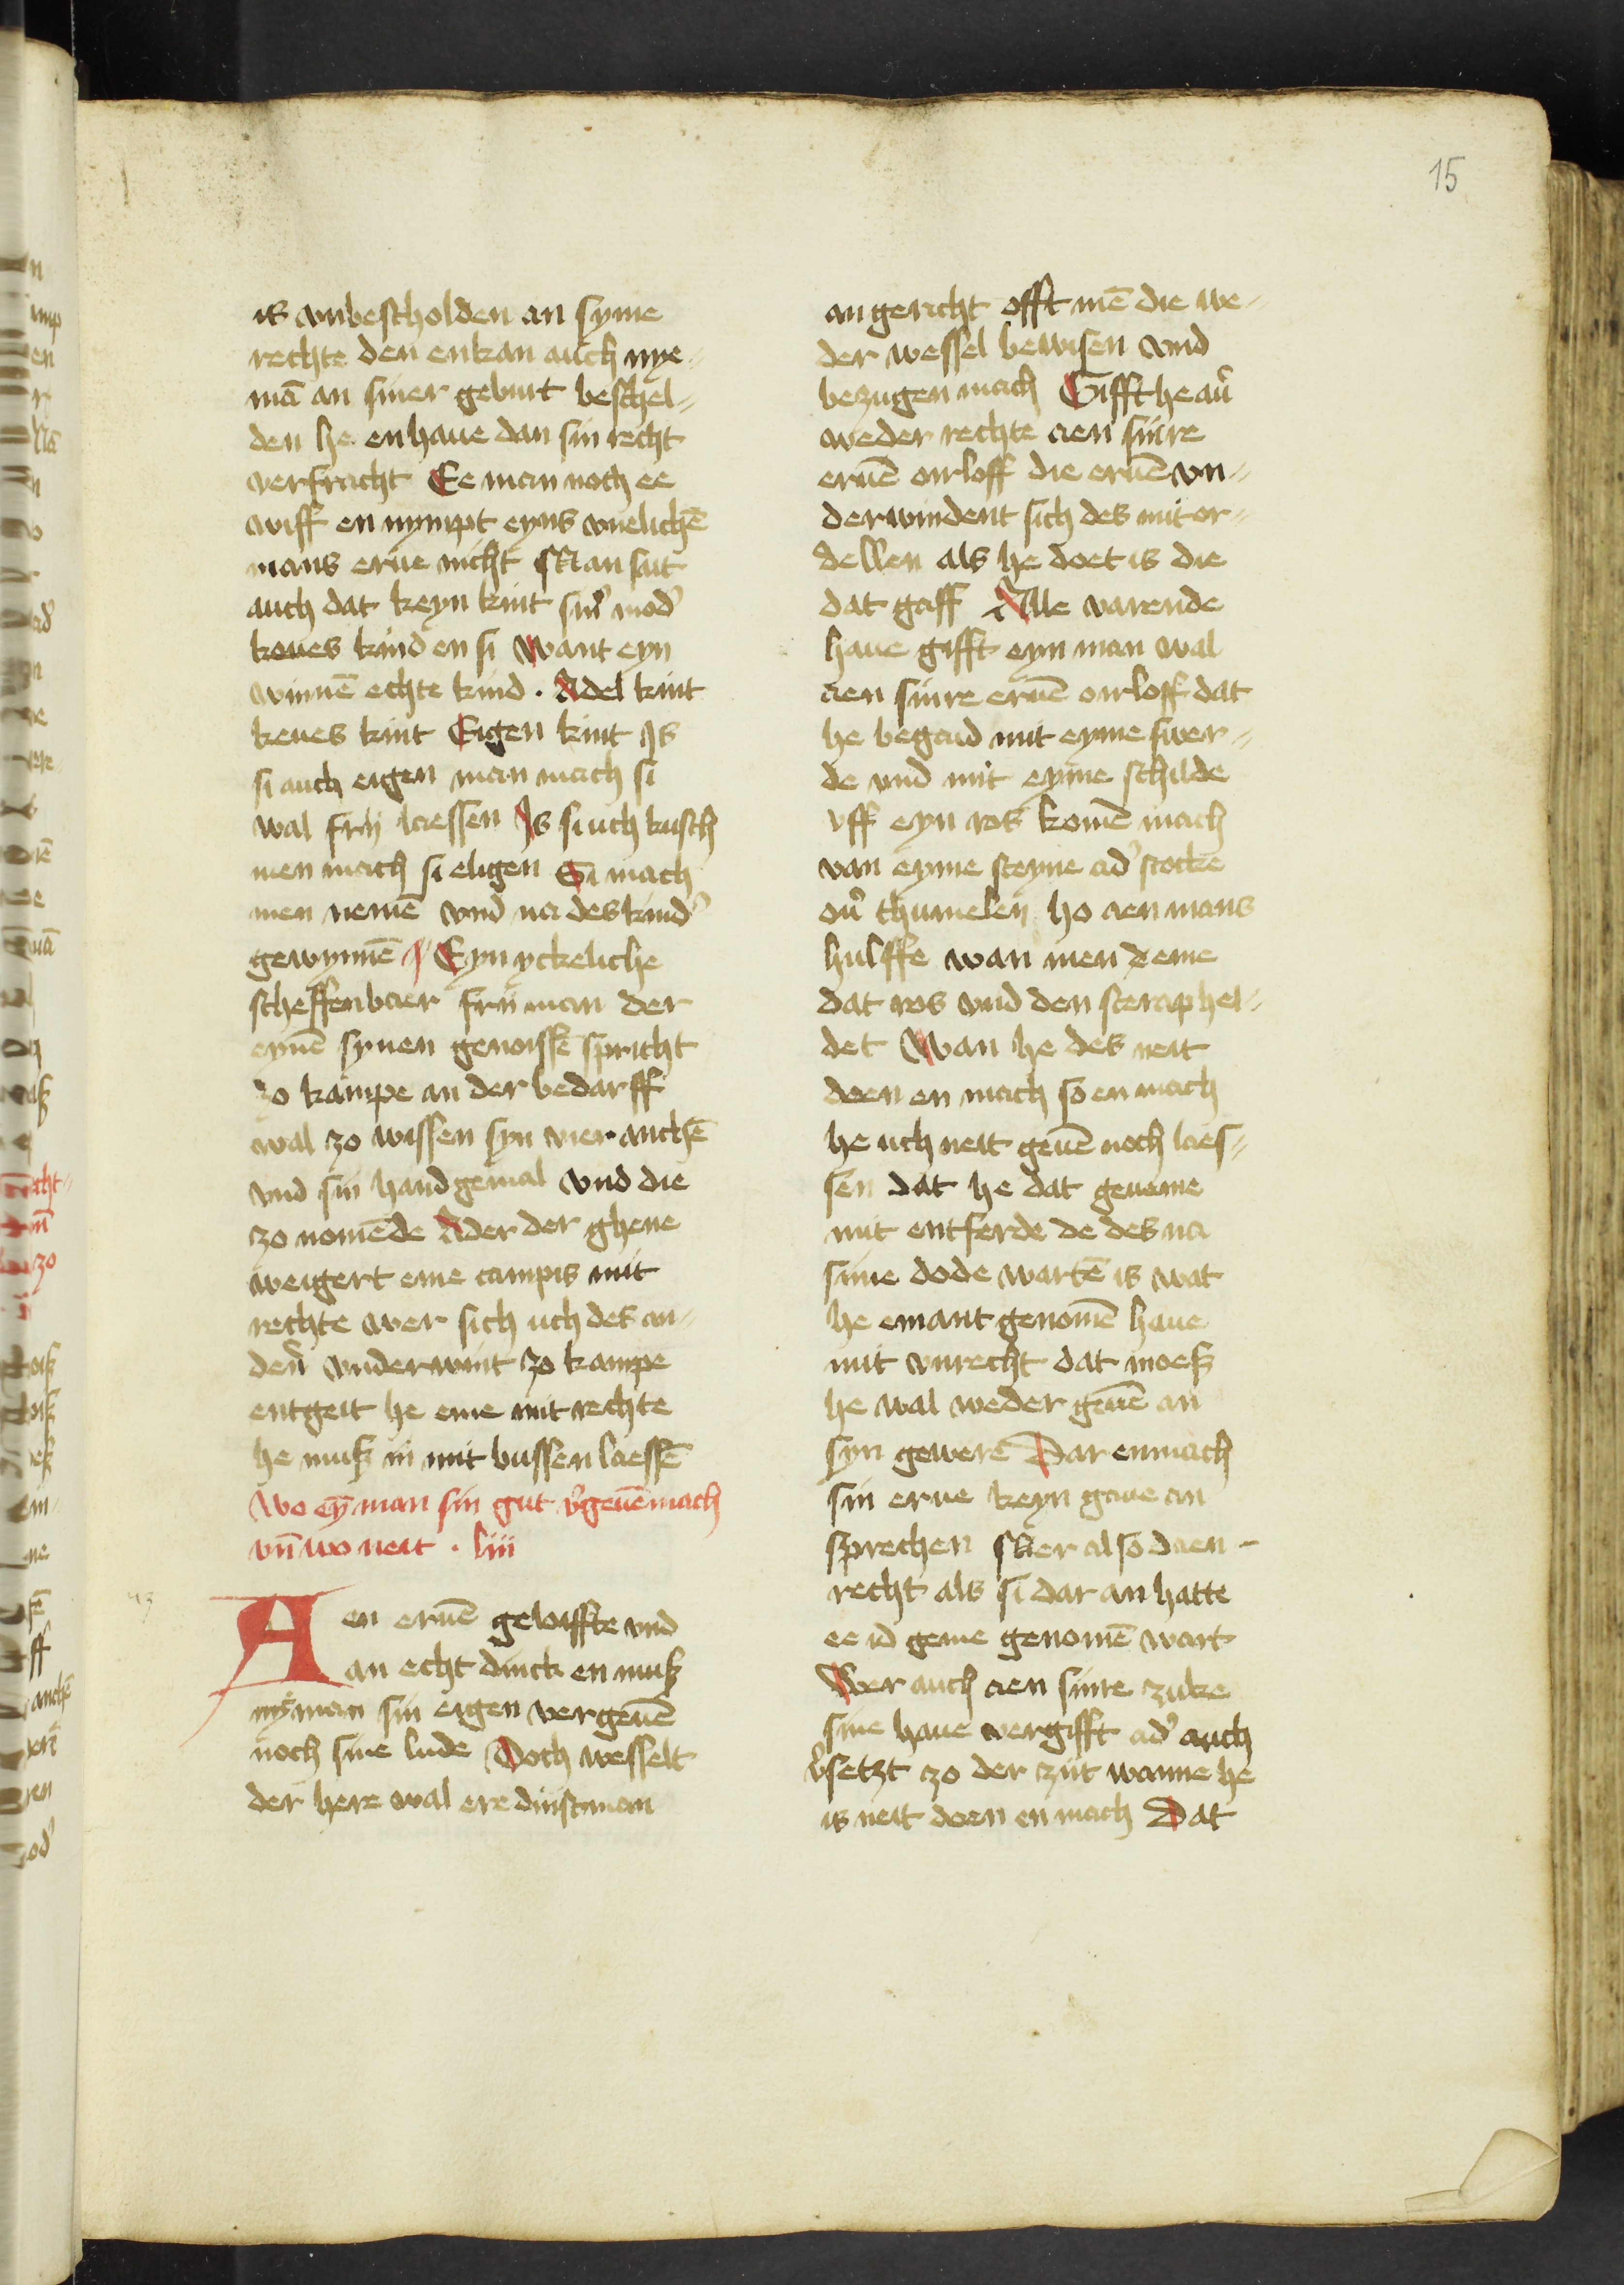 15
is vnbescholden an syme
rechte den enkan auch nye-
mā an siner geburt beschel-
den he enhaue dan sin recht
verfracht Ee man noch ee
wiff en nympt eyns vnelichē
mans erue nicht Man sait
auch dat keyn kint sinr̉ mod̉
keues kind en si Want eyn
winnē echte kind . Adel kint
keues kint Eigen kint Is
si auch eigen man mach si
wal frij laessen Is si uch kusch
men mach si eligen Si mach
men nemē vnd na des kind̉
gewynnē Eyn yckeliche
scheffenbaer frij man der
eynē synen genoissē spricht
zo kampe an der bedarff
wal zo wissen syn vier anchē
vnd sin hand gemal vnd die
zo nomēde Ader der ghene
weigert eme campis mit
rechte wer sich uch des an-
den̉ vnderwint zo kampe
entgeit he eme mit rechte
he muß in mit bussen laessē
Wo eȳ man sin gut v̉geuē mach
vn̄ wo neit . liii
Aen eruē geloiffte vnd
an echt dinck en muß
nyeman sin eigen vergeuē
noch sine lude Doch wesselt
der here wal ere dinstman
an gericht offt mē die we-
der wessel bewisen vnd
bezugen mach Gifft he au̓
weder rechte aen sinre
eruē orloff die eruē vn-
derwindent sich des mit or-
dellen als he doet is die
dat gaff Alle varende
haue gifft eyn man wal
aen sinre eruē orloff dat
he begaid mit eyme swer-
de vnd mit eyme schilde
vff eyn ros komē mach
van eyme steyne ad̉ stocke
ou̓ thumelen ho aen mans
hulffe wan men deme
dat ros vnd den steraphel-
det Wan he des neit
doen en mach so en mach
he uch neit geuē noch laes-
sen dat he dat geneme
mit entferde de des na
sime dode wartē is wat
he emant genomē haue
mit vnrecht dat moeß
he wal weder geuē an
syn gewere Dar enmach
sin erue keyn gaue an
sprechen Mer also daen
recht als si dar an hatte
ee id geme genomē wart
Wer auch aen sinre zuke
sine haue vergifft ad̉ auch
v̉setzt zo der zijt wanne he
is neit doen en mach Dat